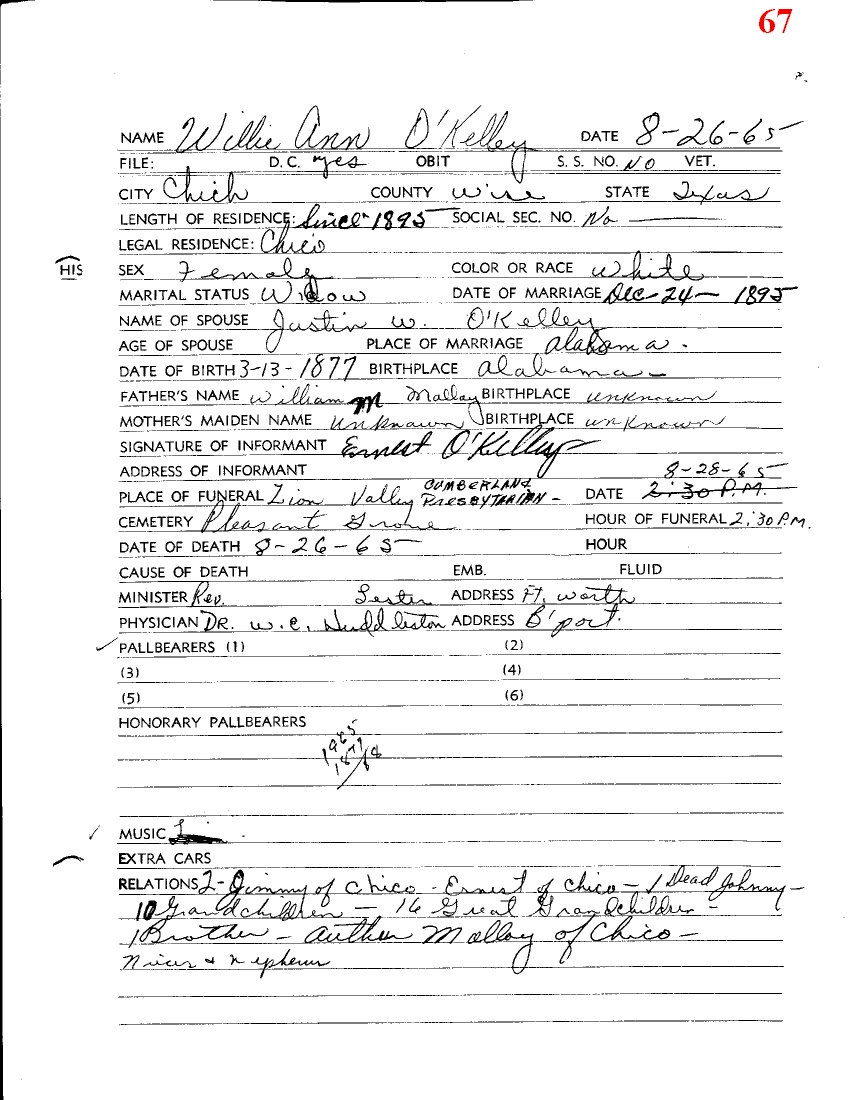 67
NAME Willie Ann O'Kelley DATE 8-26-65
FILE: D.C. yes OBIT S.S. NO. NO VET.
CITY Chico COUNTY Wise STATE Texas
LENGTH OF RESIDENCE: Since 1895 SOCIAL SEC. NO. No
LEGAL RESIDENCE: Chico
HIS
SEX Female COLOR OR RACE White
MARITAL STATUS Widow DATE OF MARRIAGE Dec-24- 1895
NAME OF SPOUSE Justin W. O'Kelley
AGE OF SPOUSE PLACE OF MARRIAGE Alabama.
DATE OF BIRTH 3-13-1877 BIRTHPLACE Alabama-
FATHER'S NAME William M Malloy BIRTHPLACE unknown
MOTHER'S MAIDEN NAME Unknown BIRTHPLACE unknown
SIGNATURE OF INFORMANT Ernest O'Kelley
ADDRESS OF INFORMANT 8-28-65
PLACE OF FUNERAL Zion Valley CUMBERLAND PRESBYTARIAN - DATE 2:30 P.M.
CEMETERY Pleasant Grove HOUR OF FUNERAL 2:30 P.M.
DATE OF DEATH 8-26-65 HOUR
CAUSE OF DEATH EMB. FLUID
MINISTER Rev. Lester ADDRESS Ft. Worth
PHYSICIAN DR. W.C. Huddleston ADDRESS B'port.
PALLBEARERS (1) (2)
(3) (4)
(5) (6)
HONORARY PALLBEARERS
1965
1877
MUSIC
EXTRA CARS
RELATIONS 2- Jimmy of Chico - Ernest of Chico - 1 Dead Johnny -
10 Grandchildren - 16 Great Grandchildren -
1 Brother - Auther Malloy of Chico -
Nieces & Nephews